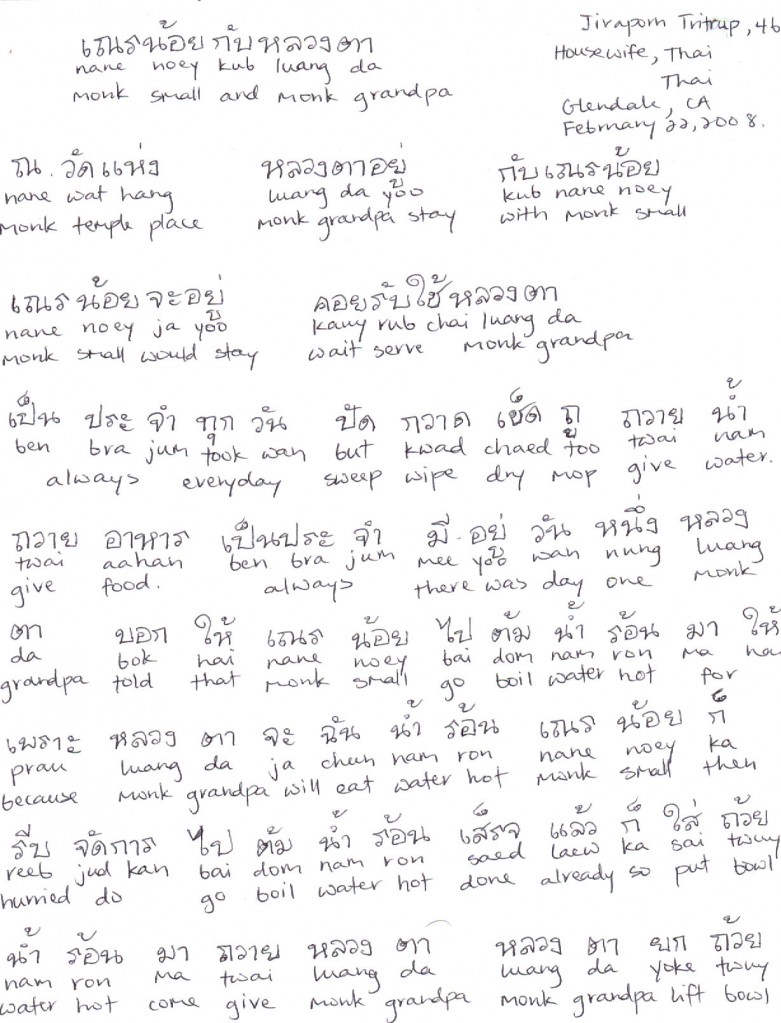 เณรน้อย กับ หลวงตา
nane noey kub luang da
monk small and monk grandpa
Jiraporn Tritrup, 46
Housewife, Thai
Thai
Glendale, CA
February 22, 2008.
ณ. วัดแห่ง หลวงตาอยู่ กับเณรน้อย
nane wat hang luang da yoo kub nane noey
monk temple place monk grandpa stay with monk small
เณร น้อย จะอยู่ คอยรับใช้ หลวงตา
nane noey ja yoo kauy rub chai luang da
monk small would stay wait serve monk grandpa
เป็น ประ จำ ทุก วัน ปัด กวาด เช็ด ถู ถวาย น้ำ
ben bra jum took wan but kwad chaed too twai nam
always everyday sweep wipe dry mop give water.
ถวาย อาหาร เป็นประ จำ มี. อยู่ วัน หนึ่ง หลวง
twai aahan ben bra jum mee yoo wan nung luang
give food. always there was day one monk
ตา บอก ให้ เณร น้อย ไป ต้ม น้ำ ร้อน มา ให้
da bok hai nane noey bai dom nam ron ma hai
grandpa told that monk small go boil water hot for
เพราะ หลวง ตา จะ ฉัน น้ำ ร้อน เณร น้อย ก็
prau luang da ja chun nam ron nane noey ka
because monk grandpa will eat water hot monk small then
รีบ จัดการ ไป ต้ม น้ำ ร้อน เสร็จ แล้ว ก็ ใส่ ถ้วย
reeb jud kan bai dom nam ron saed laew ka sai twuy
hurried do go boil water hot done already so put bowl
น้ำ ร้อน มา ถวาย หลวง ตา หลวง ตา ยก ถ้วย
nam ron ma twai luang da luang da yoke twuy
water hot come give monk grandpa monk grandpa lift bowl